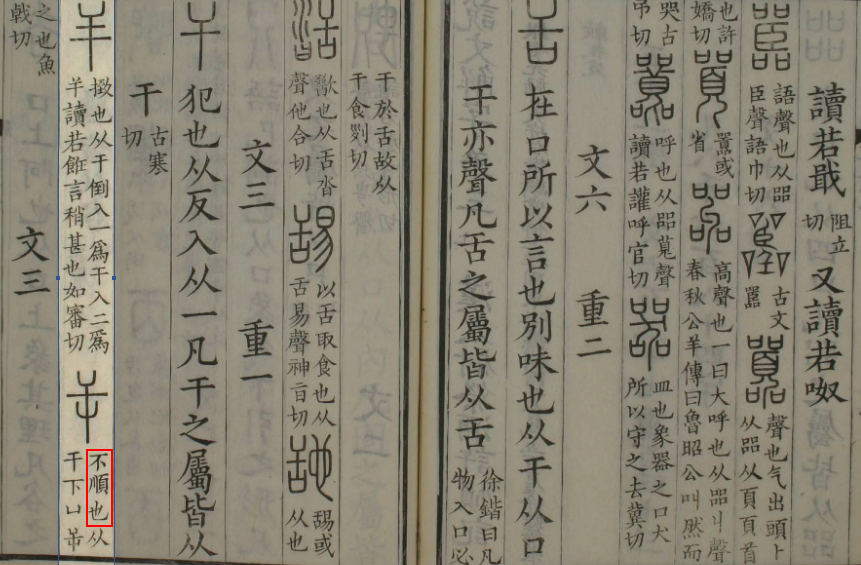 讀若戢
阻立
切
又讀若呶
嚚
語聲也从㗊
臣聲語巾切
古文
嚚
囂
聲也气出頭上
从㗊从頁頁首
也許
嬌切
囂或
省
嘂
高聲也一曰大呼也从㗊丩聲
春秋公羊傳曰魯昭公叫然而
哭古
弔切
呼也从㗊萈聲
讀若讙呼官切
器
皿也象器之口犬
所以守之去冀切
文六 重二
舌 在口所以言也別味也从干从口
干亦聲凡舌之屬皆从舌
徐鍇曰凡
物入口必
干於舌故从
干食列切
歠也从舌沓
聲他合切
舓
以舌取食也从
舌易聲神旨切
舓或
从也
文三 重一
干 犯也从反入从一凡干之屬皆从
干
古寒
切
𢆉
撖也从干倒入一爲干入二爲
𢆉讀若飪言稍甚也如審切
屰
不順也从
干下凵屰
之也魚
戟切
文三